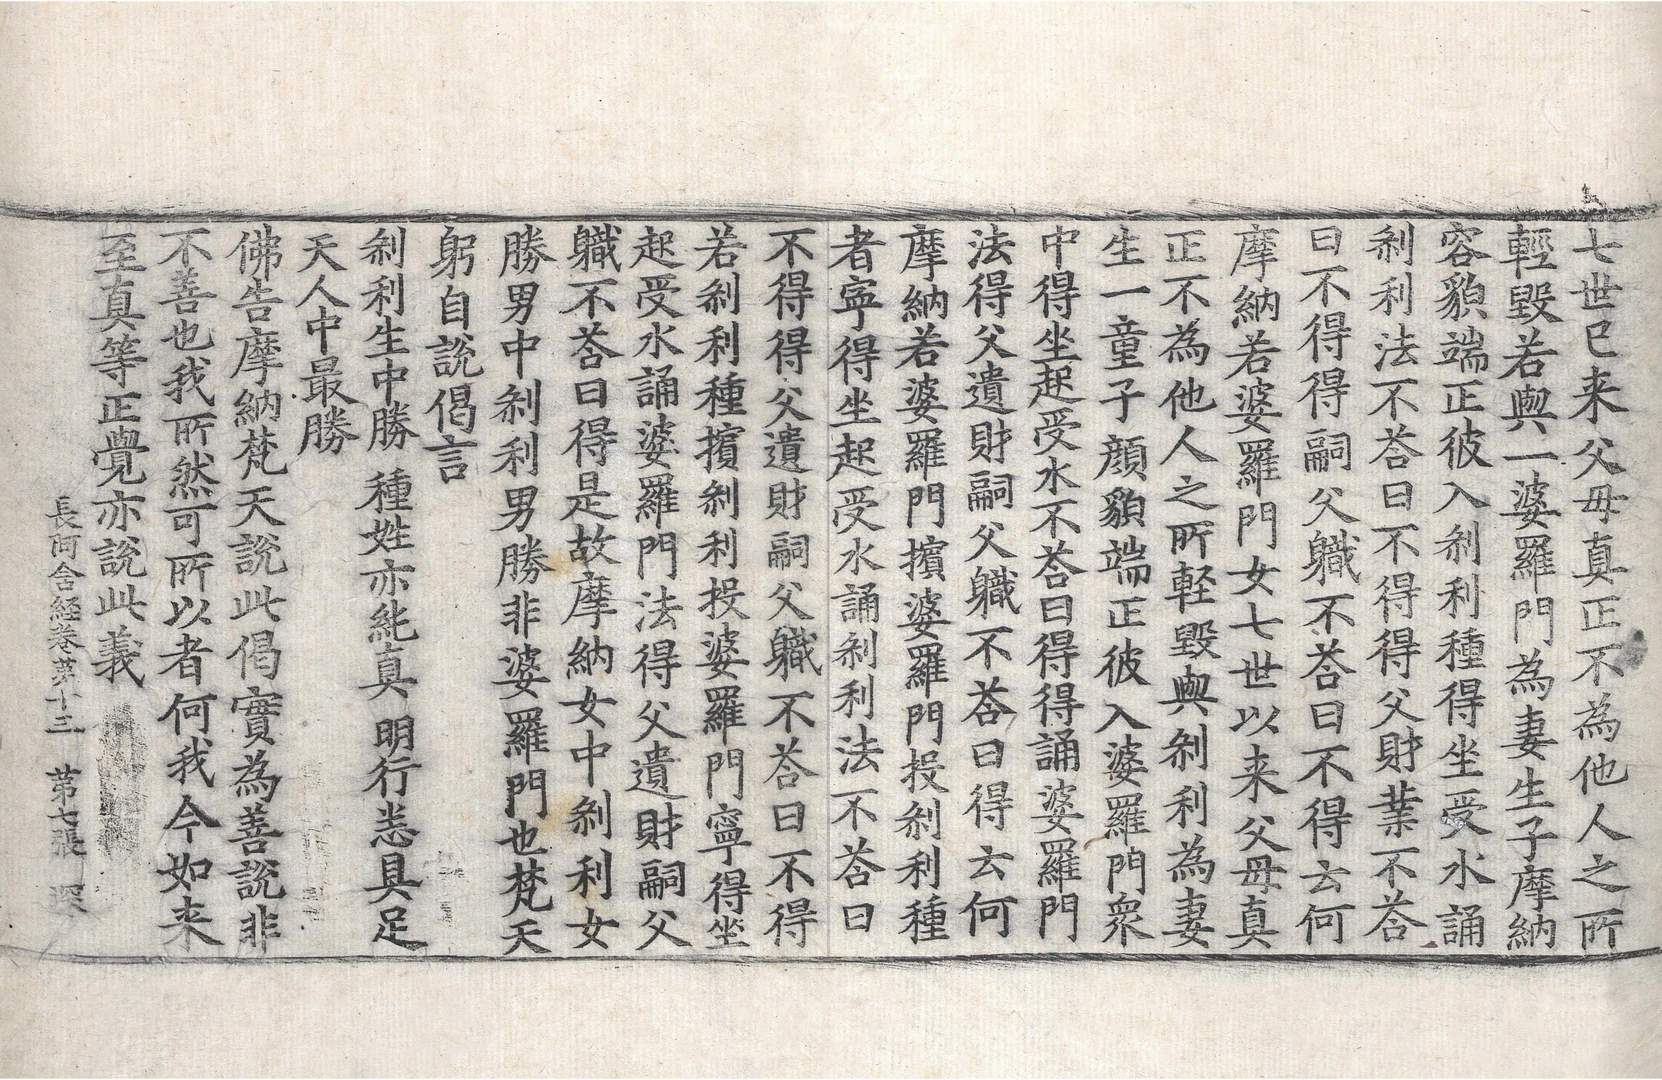 七世已来父母真正不為他人之所
輕毀若與一婆羅門為妻生子摩納
容貌端正彼入刹利種得坐受水誦
刹利法不荅曰不得得父財業不荅
曰不得得嗣父職不荅曰不得云何
摩納若婆羅門女七世以来父母真
正不為他人之所軽毀與刹利為妻
生一童子顔貌端正彼入婆羅門衆
中得坐起受水不荅曰得得誦婆羅門
法得父遺財嗣父職不荅曰得云何
摩納若婆羅門擯婆羅門投刹利種
者寧得坐起受水誦刹利法不荅曰
不得得父遺財嗣父職不荅曰不得
若刹利種擯刹利投婆羅門寧得坐
起受水誦婆羅門法得父遺財嗣父
職不荅曰得是故摩納女中刹利女
勝男中刹利男勝非婆羅門也梵天
躬自説偈言
刹利生中勝 種姓亦純真 明行悉具足
天人中最勝
佛告摩納梵天説此偈實為善説非
不善也我所然可所以者何我今如来
至真等正覺亦説此義
長阿含經卷苐十三 苐七張 深